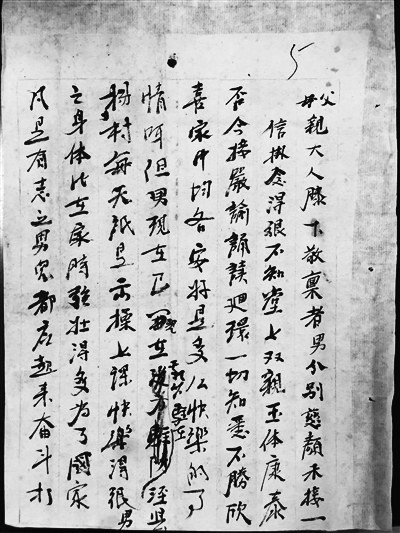 5
父母親大人膝下敬稟者男分別慈顏未接一
信掛念得很不知堂上双親玉体康泰
否今接嚴諭誦讀迴環一切知悉不勝欣
喜家中均各安好是多么快樂的事
情呵但男現在已在涇県
楊村每天紙是出操上課快樂得很男
之身体比在家時強壮得多為了國家
凡是有志之男児都应起来奋斗打